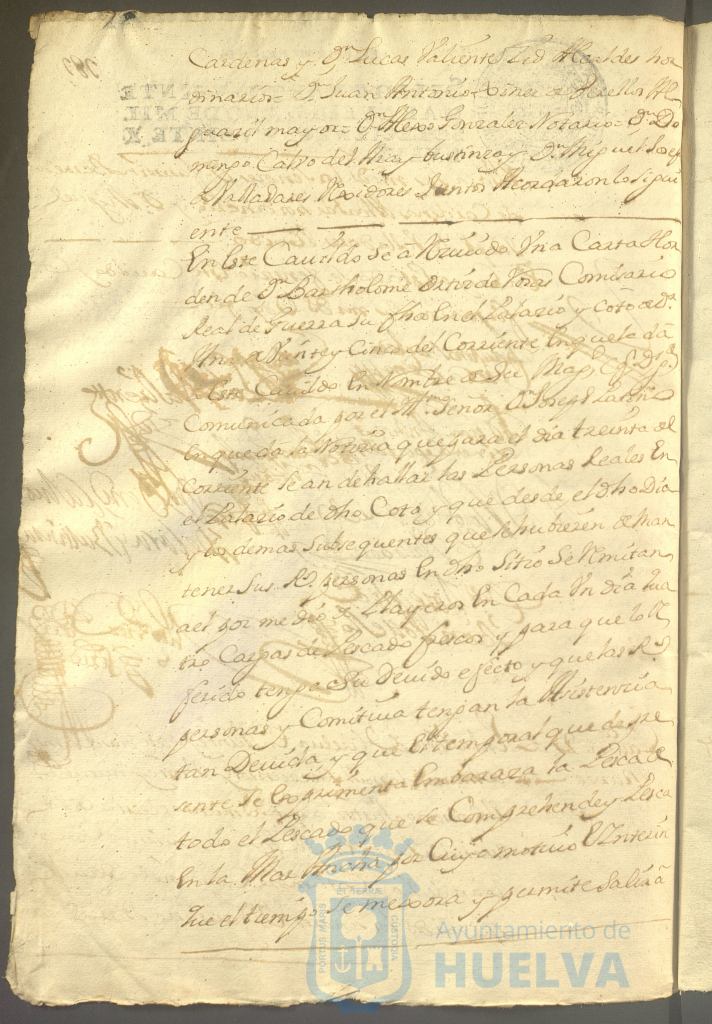 Cardenas y Dn Lucas Valiente Lzd Alcaldes hor
dinarios= Dn Juan Antonio Ximenez Al
guazil mayor= Dn Alexo Gonzalez Notario= Dn Do
mingo Calvo del Hoyo y bustinza y Dn Miguel Joseph
Valladares Rexidores Juntos Acordaron lo sigui
ente
En este Cavildo se a Rezivido Una Carta Hor
den de Dn Bartholome Ortiz de Comisario
Real de Guerra su fha En el Palazio y Coto de Da
Ana a Veinte y Cinco del Corriente En que le da
a este Cavildo En Nombre de Su Magd
Comunicada por el Señor Dn Joseph
En que da la Notizia que para el dia treinta del
Corriente se an de hallar las Personas Reales En
el Palazio de dho Coto y que desde el dho Dia
y los demas subsequentes que se hubieren de Man
tener sus Rs personas En dho Sitio se Remitan
aeł por medio de Playeros En Cada Un dia qua
tro Cargas de Pescado frescos y para que lo Re
ferido tenga Su Devido efecto y que las Rs
personas y Comitiva tengan la Asistenzia
tan Devida y que El temporal que de pre
sente se Experimenta Embaraza la Pesca de
todo el Pescado que se Comprehende y Pesca
En la Mar Ancha por Cuyo motivo El Interin
que el tiempo se mexora y permite salir a
PORTUS MARIS
ET TERRE
CUSTODIA
Ayuntamiento de
HUELVA